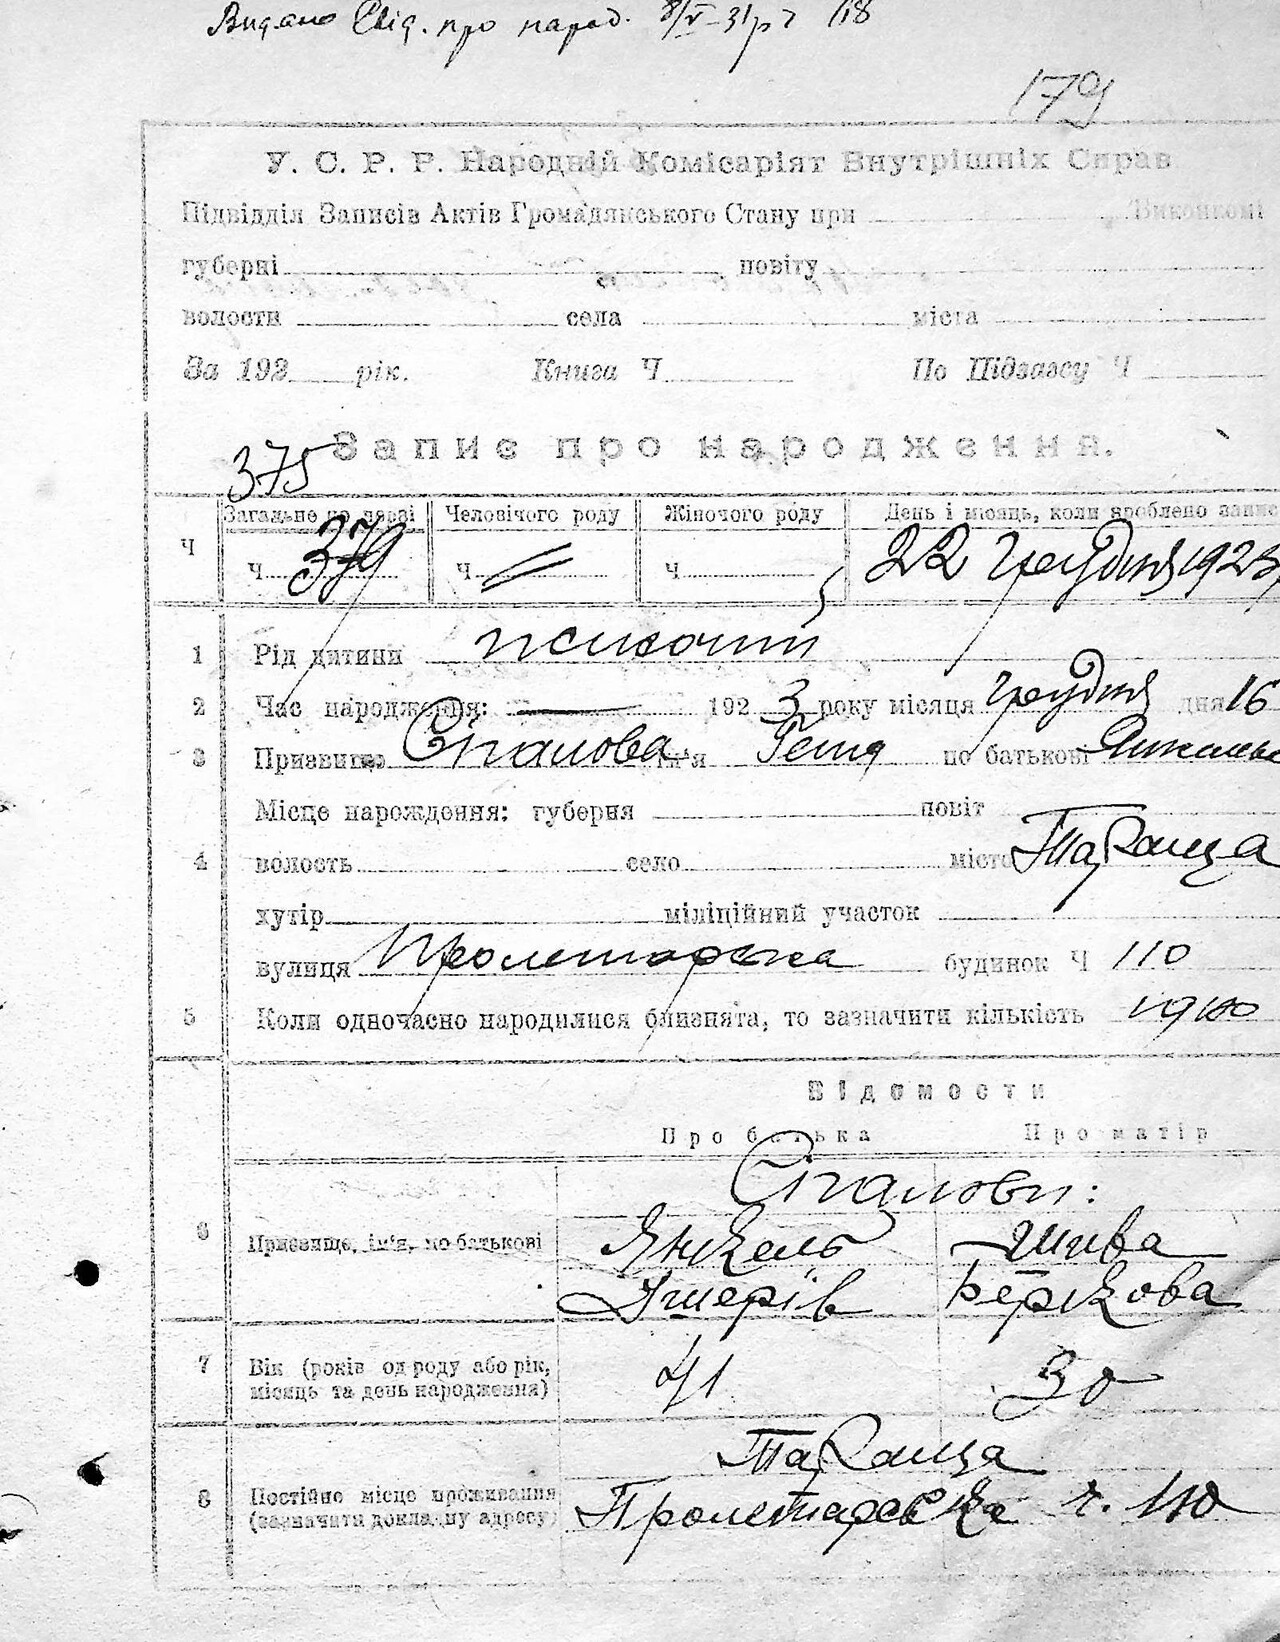 Видано Свід. про народ. 8/V-31р
179
У. С. Р. Р. Народній Комісаріят Внутрішніх Справ
Підвідділ Записів Актів Громадянського Стану при Виконкомі
губерні повіту
волости села міста
За 192 рік. Книга Ч По Підзагсу Ч
375 Запис про народження.
Ч Загальне по Человічого роду Жіночого роду День і місяць, коли зроблено запис
Ч 379 Ч Ч 22 грудня 1923
1 Рід дитини жіночий
2 Час народження: 192 3 року місяця грудня дня 16
3 Призвище Сігалова ім'я Геня по батькові
Місце нарождення: губерня повіт
4 волость село місто Тараща
хутір міліційний участок
вулиця Пролетарська будинок Ч 110
5 Коли одночасно народилися близнята, то зазначити кількість одно
Відомости
Про батька Про матір
Сігалови:
6 Призвище, ім'я, по батькові Янкель Шива
Ушерів Беркова
7 Вік (років од роду або рік, місяць та день народження) 41 30
Тараща
8 Постійне місце проживання (зазначити докладну адресу) Пролетарська ч. 110